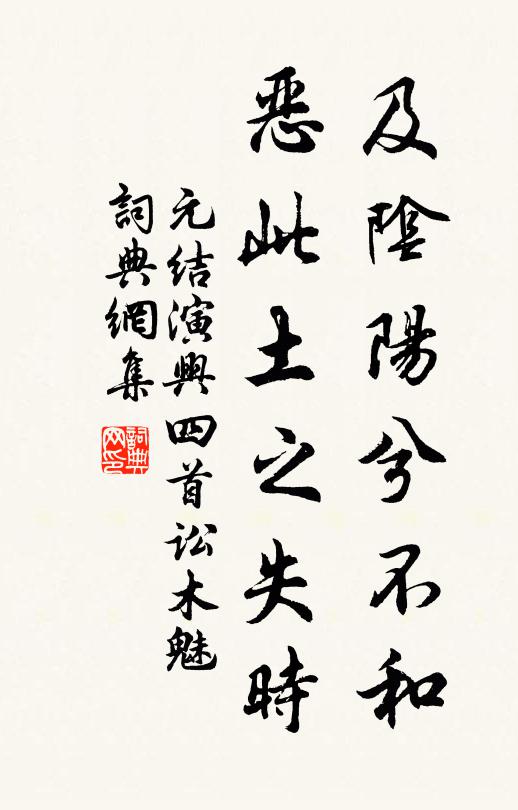 及陰陽兮不和
惡此土之失時
元结演興四首讼木魅
詞典網集
詞典网印